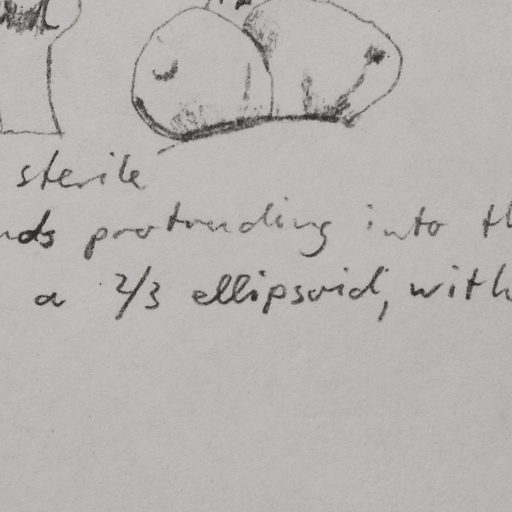 sterile
nds protruding into th
a 2/3 ellipsoid, with